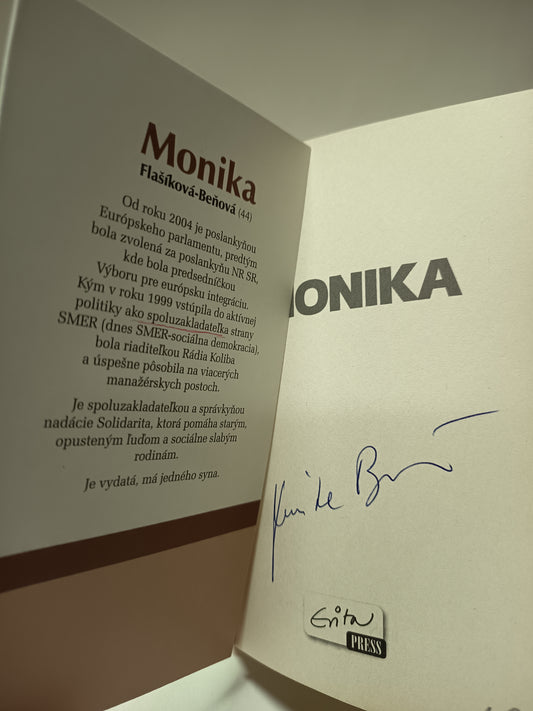 Monika
Flašíková-Beňová (44)
Od roku 2004 je poslankyňou
Európskeho parlamentu, predtým
bola zvolená za poslankyňu NR SR,
kde bola predsedníčkou
Výboru pre európsku integráciu.
Kým v roku 1999 vstúpila do aktívnej
politiky ako spoluzakladateľka strany
SMER (dnes SMER-sociálna demokracia),
bola riaditeľkou Rádia Koliba
a úspešne pôsobila na viacerých
manažérskych postoch.
Je spoluzakladateľkou a správkyňou
nadácie Solidarita, ktorá pomáha starým,
opusteným ľuďom a sociálne slabým
rodinám.
Je vydatá, má jedného syna.
MONIKA
PRESS